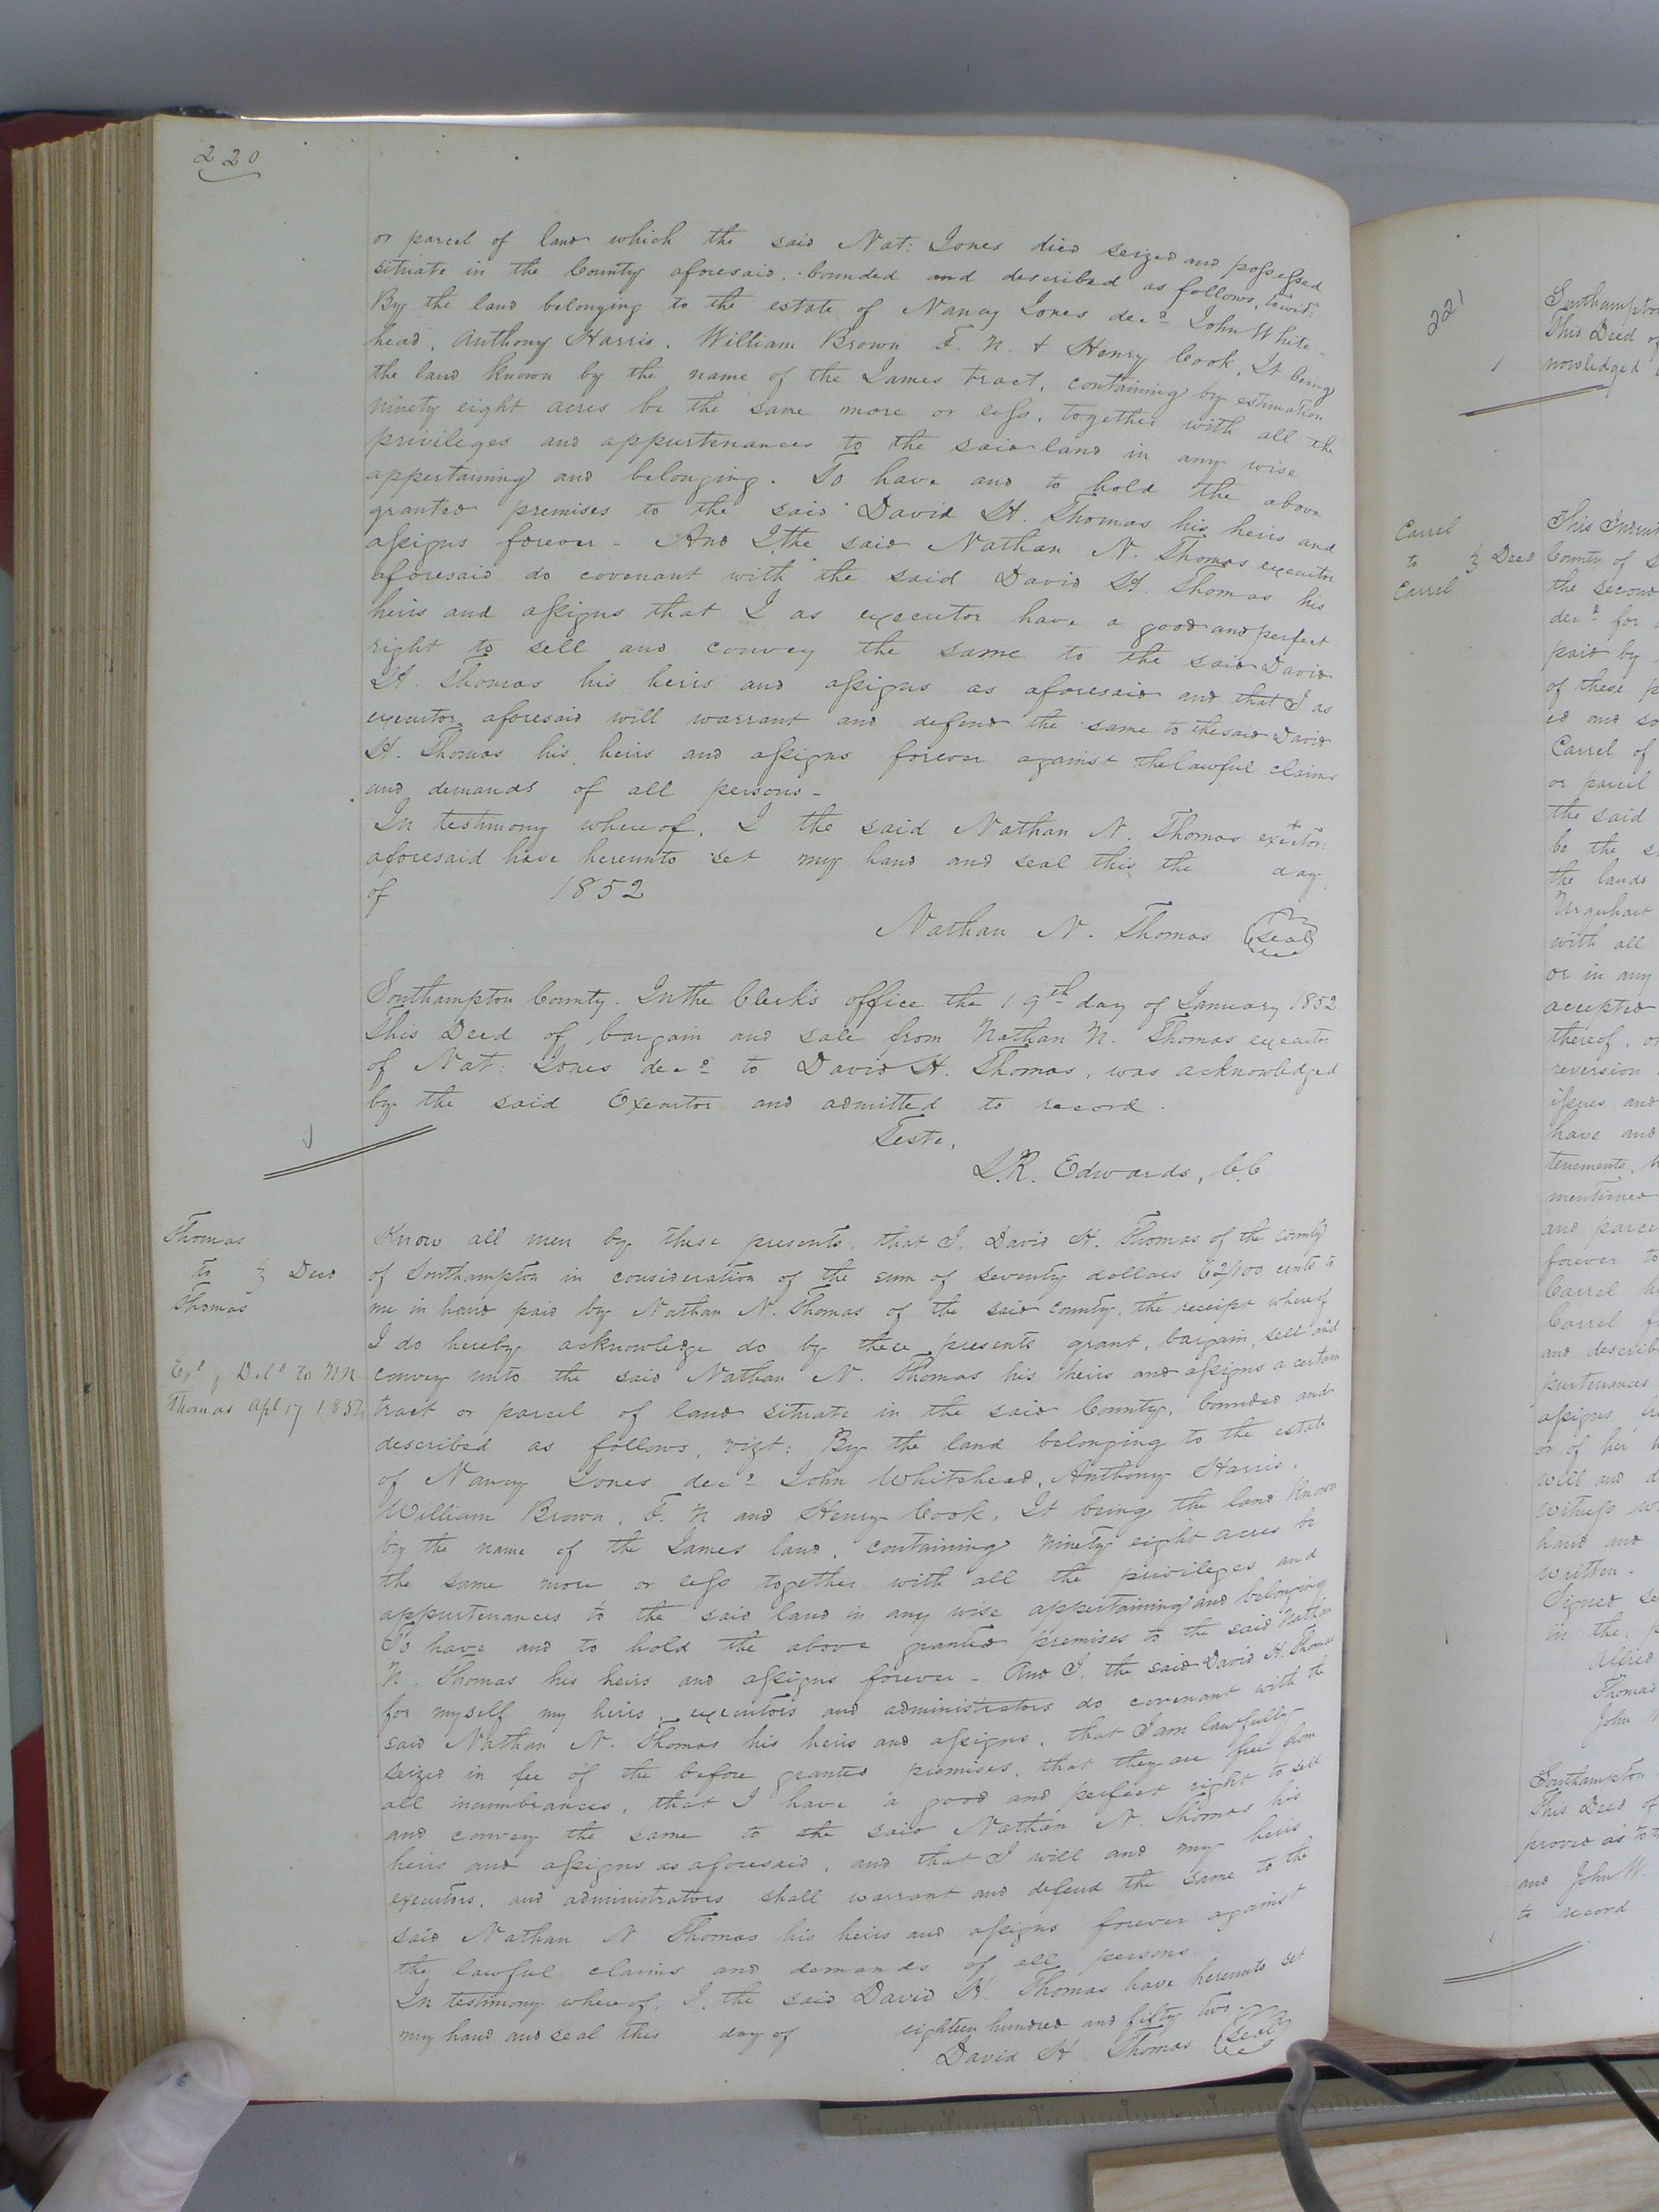 220
or parcel of land which the said Nat: Jones died seized and possessed
situate in the County aforesaid, bounded and described as follows, towit:
By the land belonging to the estate of Nancy Jones decd John White-
head, Anthony Harris, William Brown F. N. & Henry Cook, It being
the land known by the name of the James tract, containing by estimation
ninety eight acres be the same more or less, together with all the
privileges and appurtenances to the said land in any wise
appertaining and belonging. To have and to hold the above
granted premises to the said David H. Thomas his heirs and
assigns forever - And I, the said Nathan N. Thomas executor
aforesaid do covenant with the said David H. Thomas his
heirs and assigns that I as executor have a good and perfect
right to sell and convey the same to the said David
H. Thomas his heirs and assigns as aforesaid and that I as
executor aforesaid will warrant and defend the same to the said David
H. Thomas his heirs and assigns forever against the lawful claims
and demands of all persons -
In testimony whereof, I the said Nathan N. Thomas exector:
aforesaid have hereunto set my hand and seal this the day
of 1852
Nathan N. Thomas seal
Southampton County. In the Clerk's office the 19th day of January 1852
This Deed of bargain and sale from Nathan N. Thomas executor
of Nat: Jones decd to David H. Thomas, was acknowledged
by the said Executor and admitted to record.
Teste,
L.R. Edwards, C.C
Thomas
to } Deed
Thomas
Exd & Deld to N N
Thomas Apl 17 1852
Know all men by these presents, that I, David H. Thomas of the county
of Southampton in consideration of the sum of seventy dollars 62/100 cents to
me in hand paid by Nathan N. Thomas of the said county, the receipt whereof
I do hereby acknowledge do by these presents grant, bargain, sell and
convey unto the said Nathan N. Thomas his heirs and assigns a certain
tract or parcel of land situate in the said County, bounded and
described as follows, vizt: By the land belonging to the estate
of Nancy Jones decd John Whitehead, Anthony Harris,
William Brown, F. N and Henry Cook, It being the land known
by the name of the James land, containing ninety eight acres be
the same more or less together with all the privileges and
appurtenances to the said land in any wise appertaining and belonging
To have and to hold the above granted premises to the said Nathan
N. Thomas his heirs and assigns forever - And I, the said David H. Thomas
for myself my heirs, executors and administrators do covenant with the
said Nathan N. Thomas his heirs and assigns, that I am lawfully
seized in fee of the before granted premises, that they are free from
all incumbrances, that I have a good and perfect right to sell
and convey the same to the said Nathan N. Thomas his
heirs and assigns as aforesaid, and that I will and my heirs
executors, and administrators shall warrant and defend the same to the
said Nathan N Thomas his heirs and assigns forever against
the lawful claims and demands of all persons.
In testimony whereof, I, the said David H. Thomas have hereunto set
my hand and seal this day of eighteen hundred and fifty two.
David H. Thomas seal
221
Southampton
This Deed of
nowledged
Carrel
to } Deed
Carrel
This Inden
County of S
the second
decd for
paid by
of these p
ed and so
Carrel of
or parcel
the said
be the s
the lands
Urquhart
with all
or in any
accepted
thereof, o
reversion
issues and
have and
tenements,
mentioned
and parce
forever to
Carrel h
Carrel f
and describ
purtenances
assigns,
or of her
will and d
witness w
hand and
written -
Signed se
in the p
Alfred
Thomas
John W
Southampton
This Deed of
proved as to
and John W.
to record